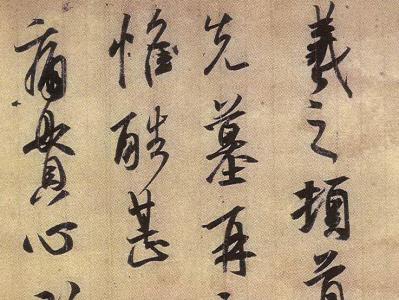 羲之頓首
先墓再
惟酷甚
痛貫心